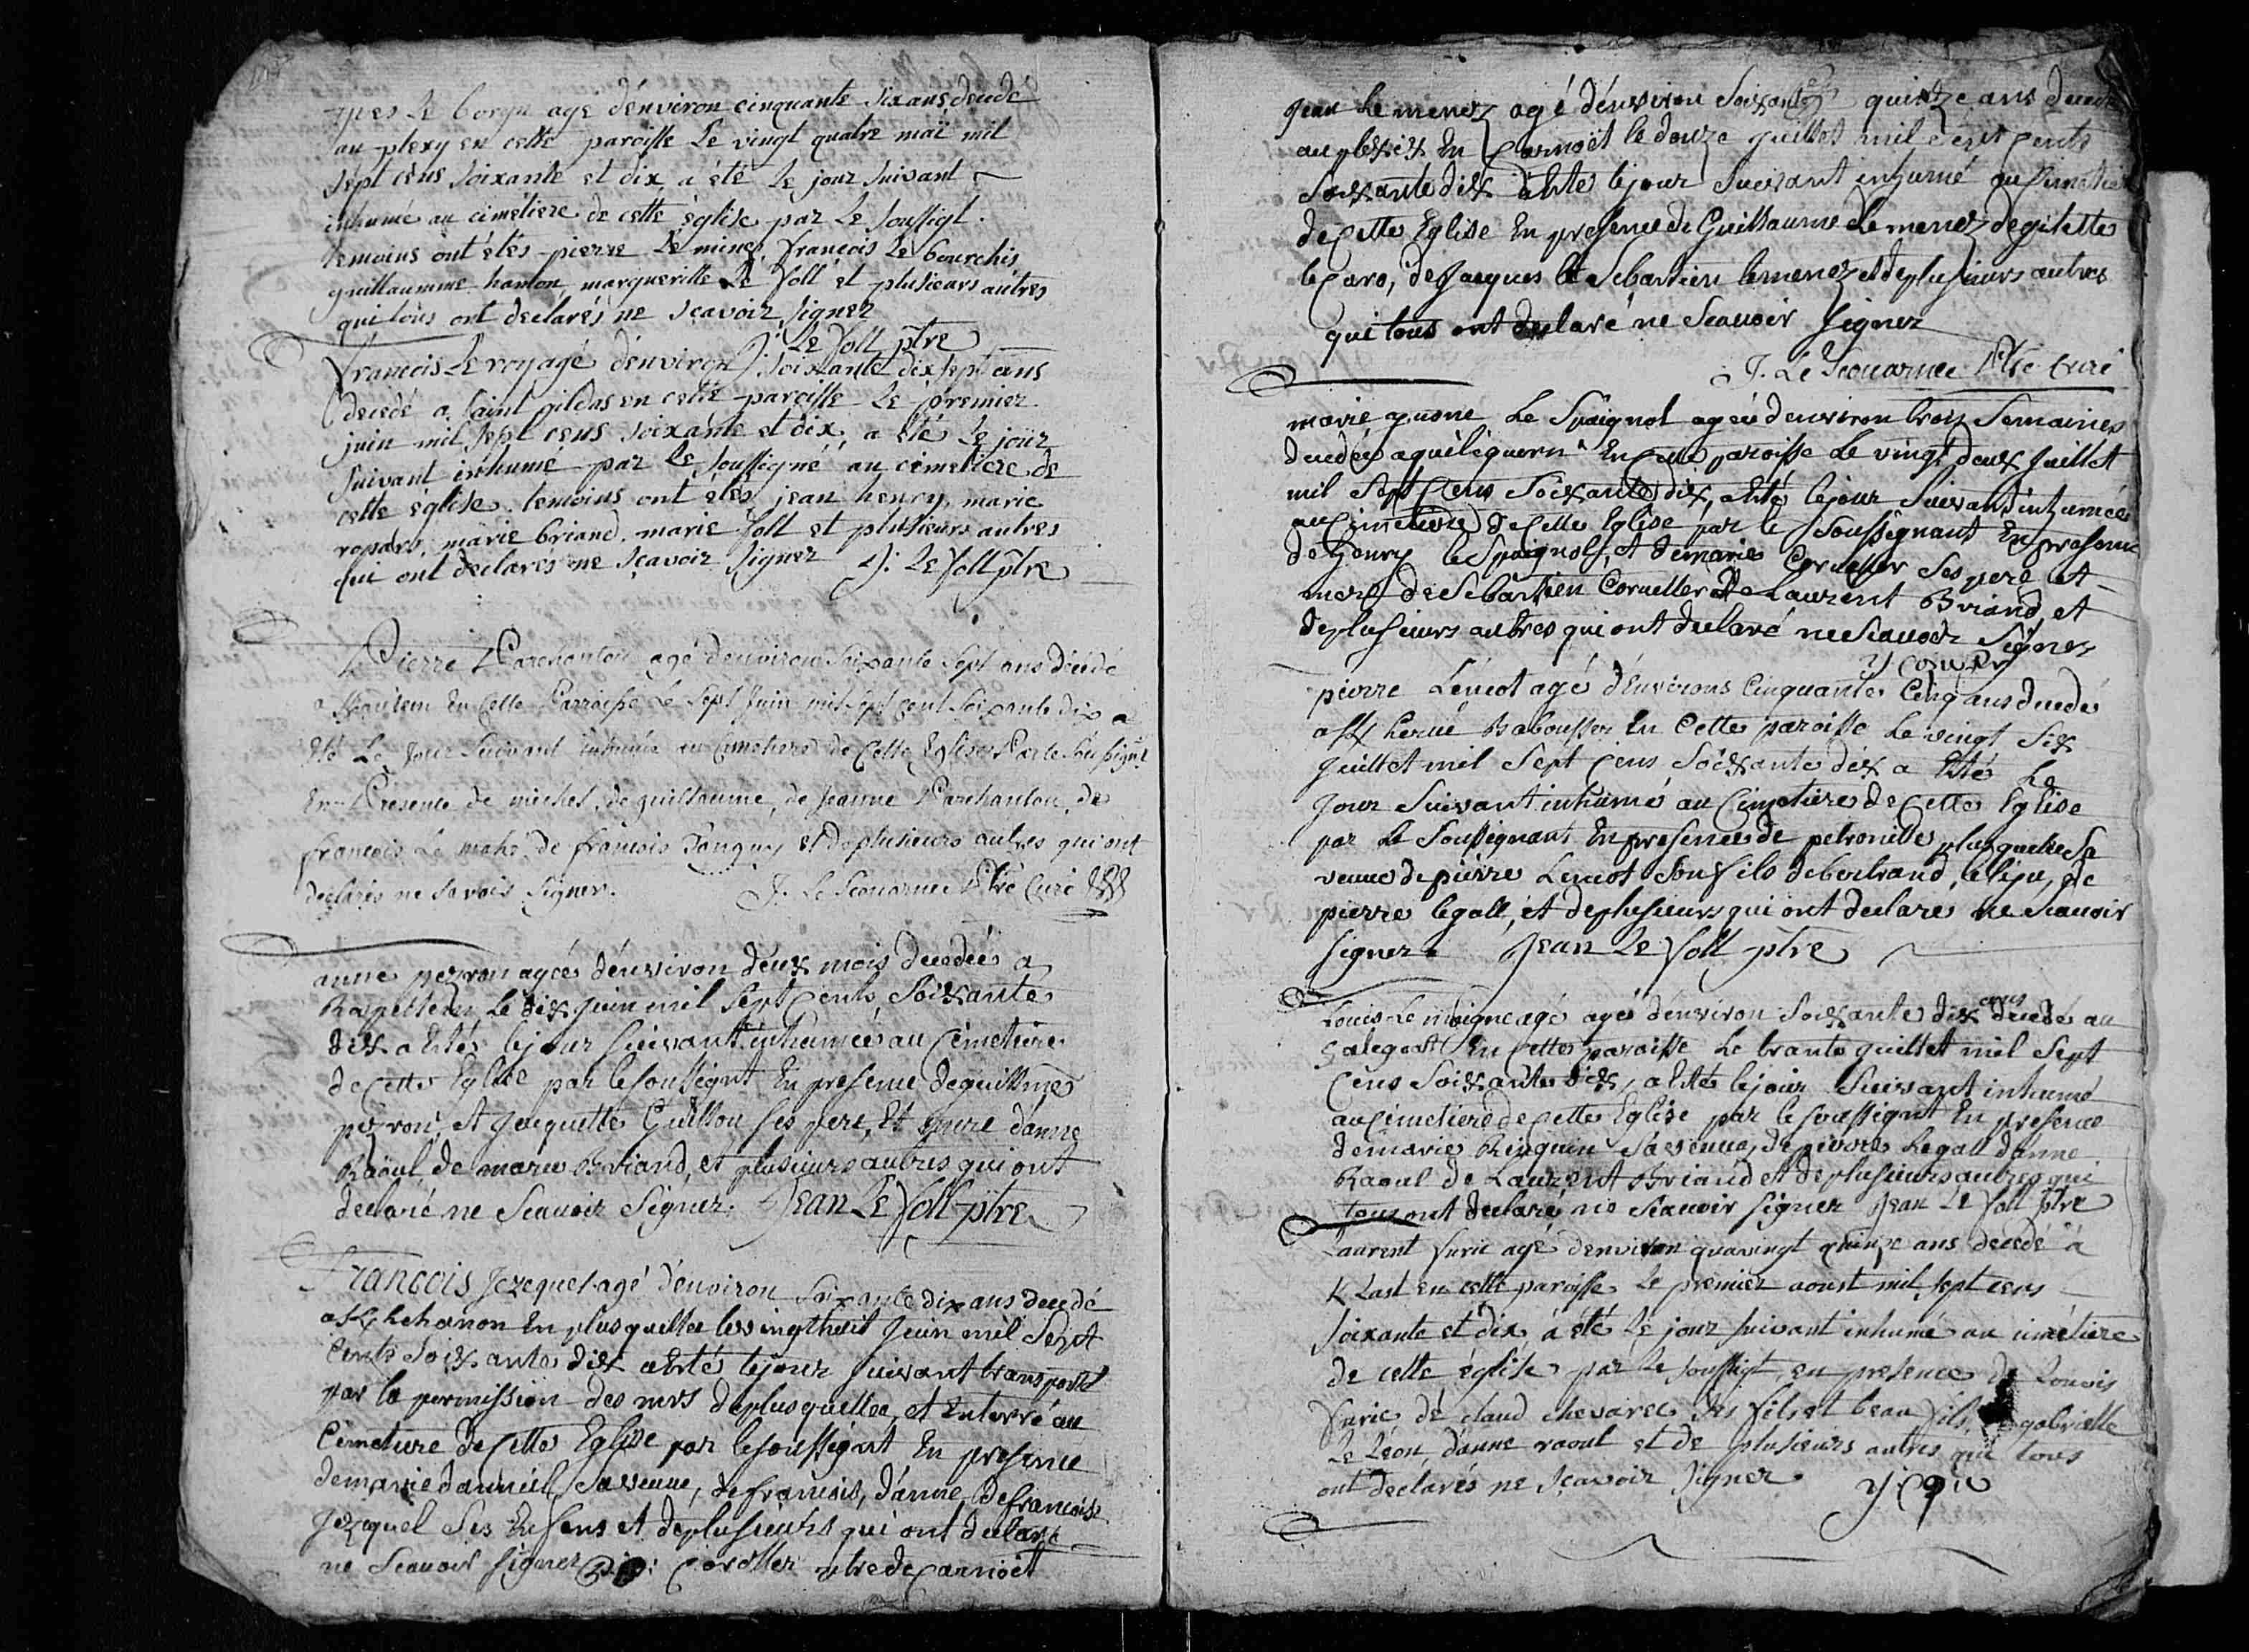 yves Le borgn agé d'environ cinquante six ans decedé
au plexy en cette paroisse Le vingt quatre mai mil
sept cens soixante et dix a été Le jour suivant
inhumé au cimetiere de cette église par Le soussigt.
temoins ont étés pierre Le minez, françois Le bourchis
guillaumme hamon margueritte Le foll et plusieurs autres
qui tous ont declarés ne sçavoir signer
J: Le foll ptre
francois Le roy agé d'environ soixante dix sept ans
decedé a saint gildas en cette paroisse Le premier
juin mil sept cens soixante et dix, a été Le jour
suivant inhumé par Le soussigné au cimetiere de
cette église. temoins ont étés jean henry, marie
ropars, marie briand, marie foll et plusieurs autres
qui ont declarés ne sçavoir signer J: Le foll ptre
Pierre Parchantou agé d'environ soixante sept ans décédé
a en Cette Parroisse Le sept Juin mil sept cent soixante dix a
été Le jour suivant inhumé au Cimetiere de Cette Eglise Par le soussigné
En Présence de michel, de guillaume, de Jeanne Parchantou, de
francois Le mahé, de francois Tanguy et de plusieurs autres qui ont
declarés ne savoir signer. J. Le Scouarnec Ptre Curé
anne pezron agée d'environ deux mois decedée a
le dix juin mil sept cents soixante
dix a Eté le jour suivant inhumée au cimetiere
de cette Eglise par le soussignt En presence de guillme
pezron, et jacquette Guillou ses pere et mere d'anne
Raoul, de marie Briand, et plusieurs autres qui ont
declaré ne scauoir signer. Jean Le foll ptre
Francois Jezequel agé d'environ soixante dix ans decedé
a K/hehanon En plusquellec le vingt huit juin mil sept
cents soixante dix a Eté le jour suivant transporté
par la permission des mrs de plusquellec, et Enterré au
Cimetiere de cette Eglise par le soussignt En presence
de marie danniel, sa veuue, de francois, d'anne, de francoise
jezequel ses Enfans et de plusieurs qui ont declaré
ne scauoir signer Coroller ptre de carnoët
jean Le menez agé d'environ soixante quinze ans decedé
au plessis En Carnoët le douze juillet mil sept cents
soixante dix a Eté le jour suivant inhumé au cimetiere
de cette Eglise En presence de Guillaume Le menez de gilette
le Caro, de jacques et Sebastien le menez et de plusieurs autres
qui tous ont declaré ne scauoir signer
J. Le Scouarnec Ptre curé
marie yuone Le Spaignol agée d'environ trois semaines
decedée a quéléguern En cette paroisse Le vingt deux juillet
mil sept cens soixante dix, a Eté le jour suivant inhumée
au cimetiere de cette Eglise par le soussignant En presence
de henry le Spaignol, et de marie Corveller ses pere et
mere de Sebastien Corveller de Laurent Briand et
de plusieurs autres qui ont declaré ne scauoir signer
pierre Léncot agé d'Environs cinquante cinq ans decedé
a K/herué Baboussou En Cette paroisse Le vingt six
juillet mil sept cens soixante dix a Eté Le
jour suivant inhumé au cimetiere de cette Eglise
par le soussignant En presence de petronille plusquellec sa
veuue de pierre Lencot son fils de bertrand, de
pierre legall, et de plusieurs qui ont declarés ne scauoir
signer. Jean Le foll ptre
Louis Le moigne agé agé d'environ soixante dix ans decedé au
En Cette paroisse Le trante juillet mil sept
cens soixante dix, a Eté le jour suivant inhumé
au cimetiere de cette Eglise par le soussignt En presence
de marie sa veuue, de pierre Legall d'anne
Raoul de Laurent Briand et de plusieurs autres qui
tous ont declaré ne scauoir signer Jean Le foll ptre
Laurent furic agé d'environ quavingt quinze ans decedé à
K Last en cette paroisse Le premier aoust mil sept cens
soixante et dix, a été Le jour suivant inhumé au cimetiere
de cette église par Le soussigt, en presence de Louois
furic de claud chevarec ses fils et beau fils, gabrielle
Le Leon, d'anne raoul et de plusieurs autres qui tous
ont declarés ne sçavoir signer